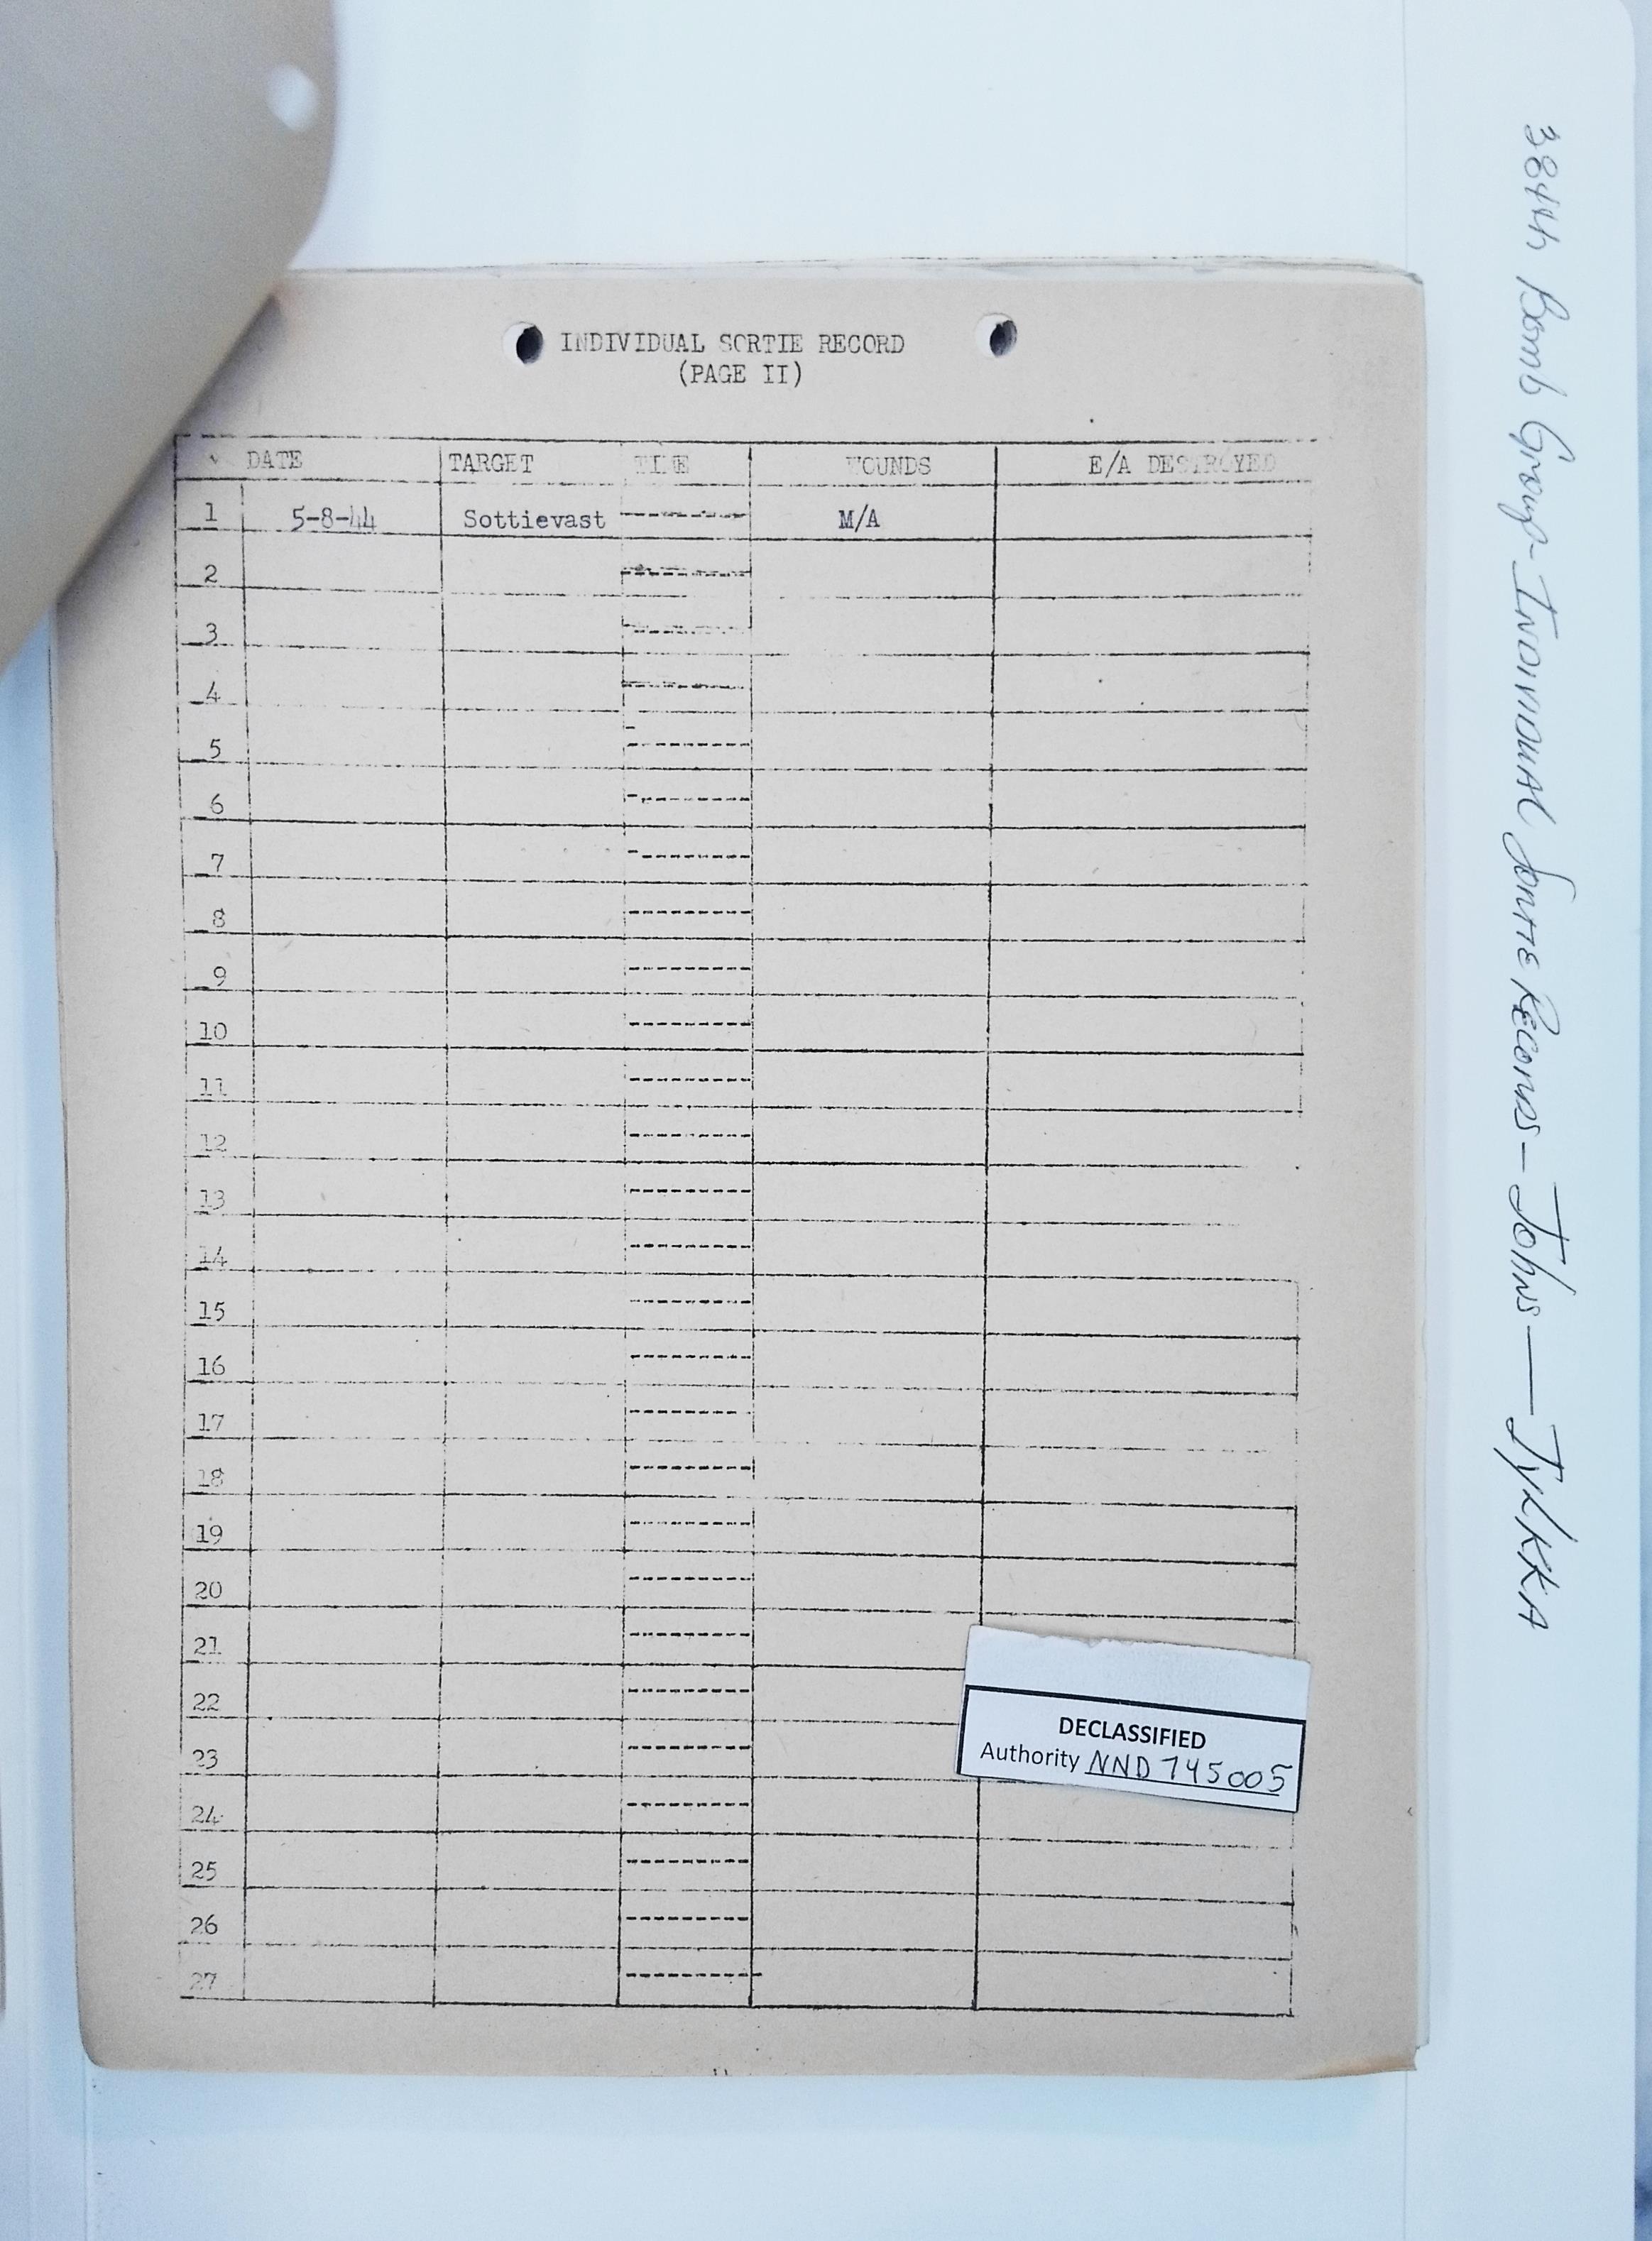 INDIVIDUAL SORTIE RECORD
(PAGE II)
DATE TARGET TIME WOUNDS E/A DESTROYED
1 5-8-44 Sottievast M/A
2
3
4
5
6
7
8
9
10
11
12
13
14
15
16
17
18
19
20
21
22
23
24
25
26
27
DECLASSIFIED
Authority NND 745005
384th Bomb Group - Individual Sortie Records - Johns - Jylkka